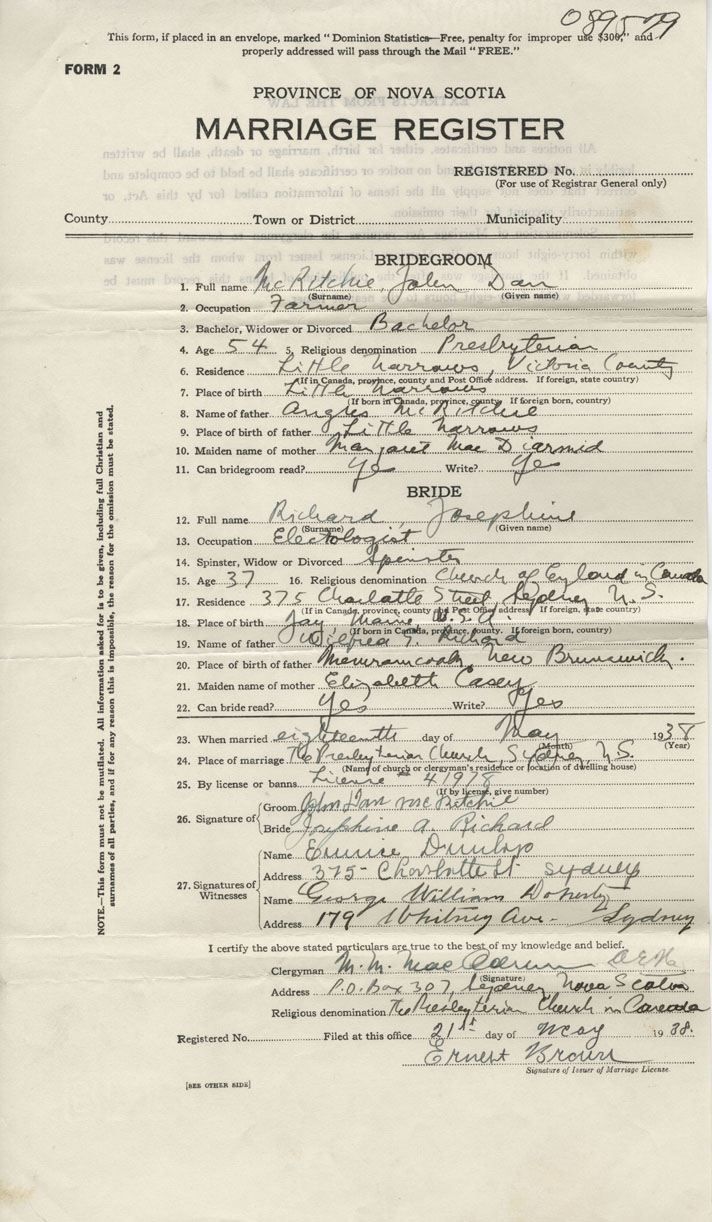 089579
This form, if placed in an envelope, marked "Dominion Statistics—Free, penalty for improper use $300," and
properly addressed will pass through the Mail "FREE."
FORM 2
PROVINCE OF NOVA SCOTIA
MARRIAGE REGISTER
REGISTERED No.
(For use of Registrar General only)
County Town or District Municipality
BRIDEGROOM
1. Full name McRitchie, John Dan
(Surname) (Given name)
2. Occupation Farmer
3. Bachelor, Widower or Divorced Bachelor
4. Age 54 5. Religious denomination Presbyterian
6. Residence Little Narrows, Victoria County
(If in Canada, province, county and Post Office address. If foreign, state country)
7. Place of birth Little Narrows
(If born in Canada, province, county. If foreign born, country)
8. Name of father Angus McRitchie
9. Place of birth of father Little Narrows
10. Maiden name of mother Margaret Mac Diarmid
11. Can bridegroom read? Yes Write? Yes
BRIDE
12. Full name Richard, Josephine
(Surname) (Given name)
13. Occupation Electologist
14. Spinster, Widow or Divorced Spinster
15. Age 37 16. Religious denomination Church of England in Canada
17. Residence 375 Charlotte Street, Sydney N.S.
(If in Canada, province, county and Post Office address. If foreign, state country)
18. Place of birth Jay Maine, U.S.A.
(If born in Canada, province, county. If foreign born, country)
19. Name of father Wilfred T. Richard
20. Place of birth of father Memramcook, New Brunswick.
21. Maiden name of mother Elizabeth Casey
22. Can bride read? Yes Write? Yes
23. When married eighteenth day of May 1938
(Month) (Year)
24. Place of marriage The Presbyterian Church, Sydney, N.S.
(Name of church or clergyman's residence or location of dwelling house)
25. By license or banns License # 41978
(If by license, give number)
26. Signature of Groom John Dan McRitchie
Bride Josephine A. Richard
27. Signatures of Witnesses
Name Eunice Dunlop
Address 375- Charlotte St Sydney
Name George William Doherty
Address 179 Whitney Ave- Sydney
I certify the above stated particulars are true to the best of my knowledge and belief.
Clergyman M. M. Mac
(Signature)
Address P.O. Box 307, Sydney Nova Scotia
Religious denomination The Presbyterian Church in Canada
Registered No. Filed at this office 21st day of May 1938.
Ernest Brown
Signature of Issuer of Marriage License
[SEE OTHER SIDE]
NOTE.—This form must not be mutilated. All information asked for is to be given, including full Christian and
surnames of all parties, and if for any reason this is impossible, the reason for the omission must be stated.